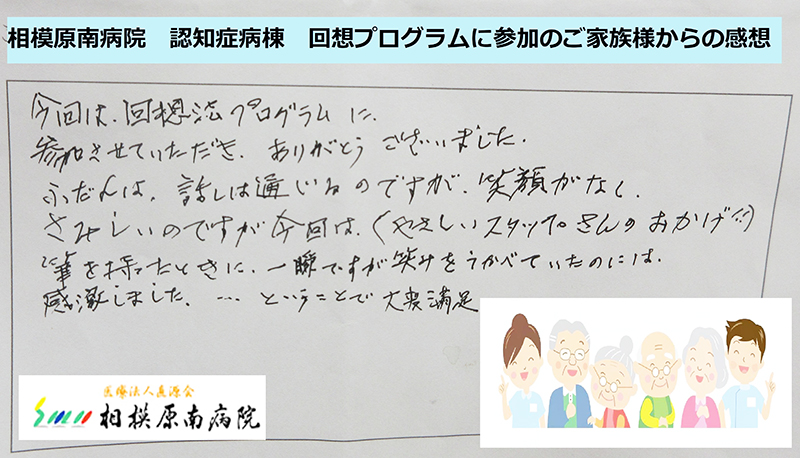 相模原南病院　認知症病棟　回想プログラムに参加のご家族様からの感想
今回は、回想法プログラムに、
参加させていただき、ありがとうございました。
ふだんは、話しは通じるのですが、笑顔がなく、
さみしいのですが今回は、(やさしいスタッフさんのおかげ!!)
筆を持ったときに、一瞬ですが笑みをうかべていたのには、
感激しました。… ということで大変満足
医療法人直源会
相模原南病院